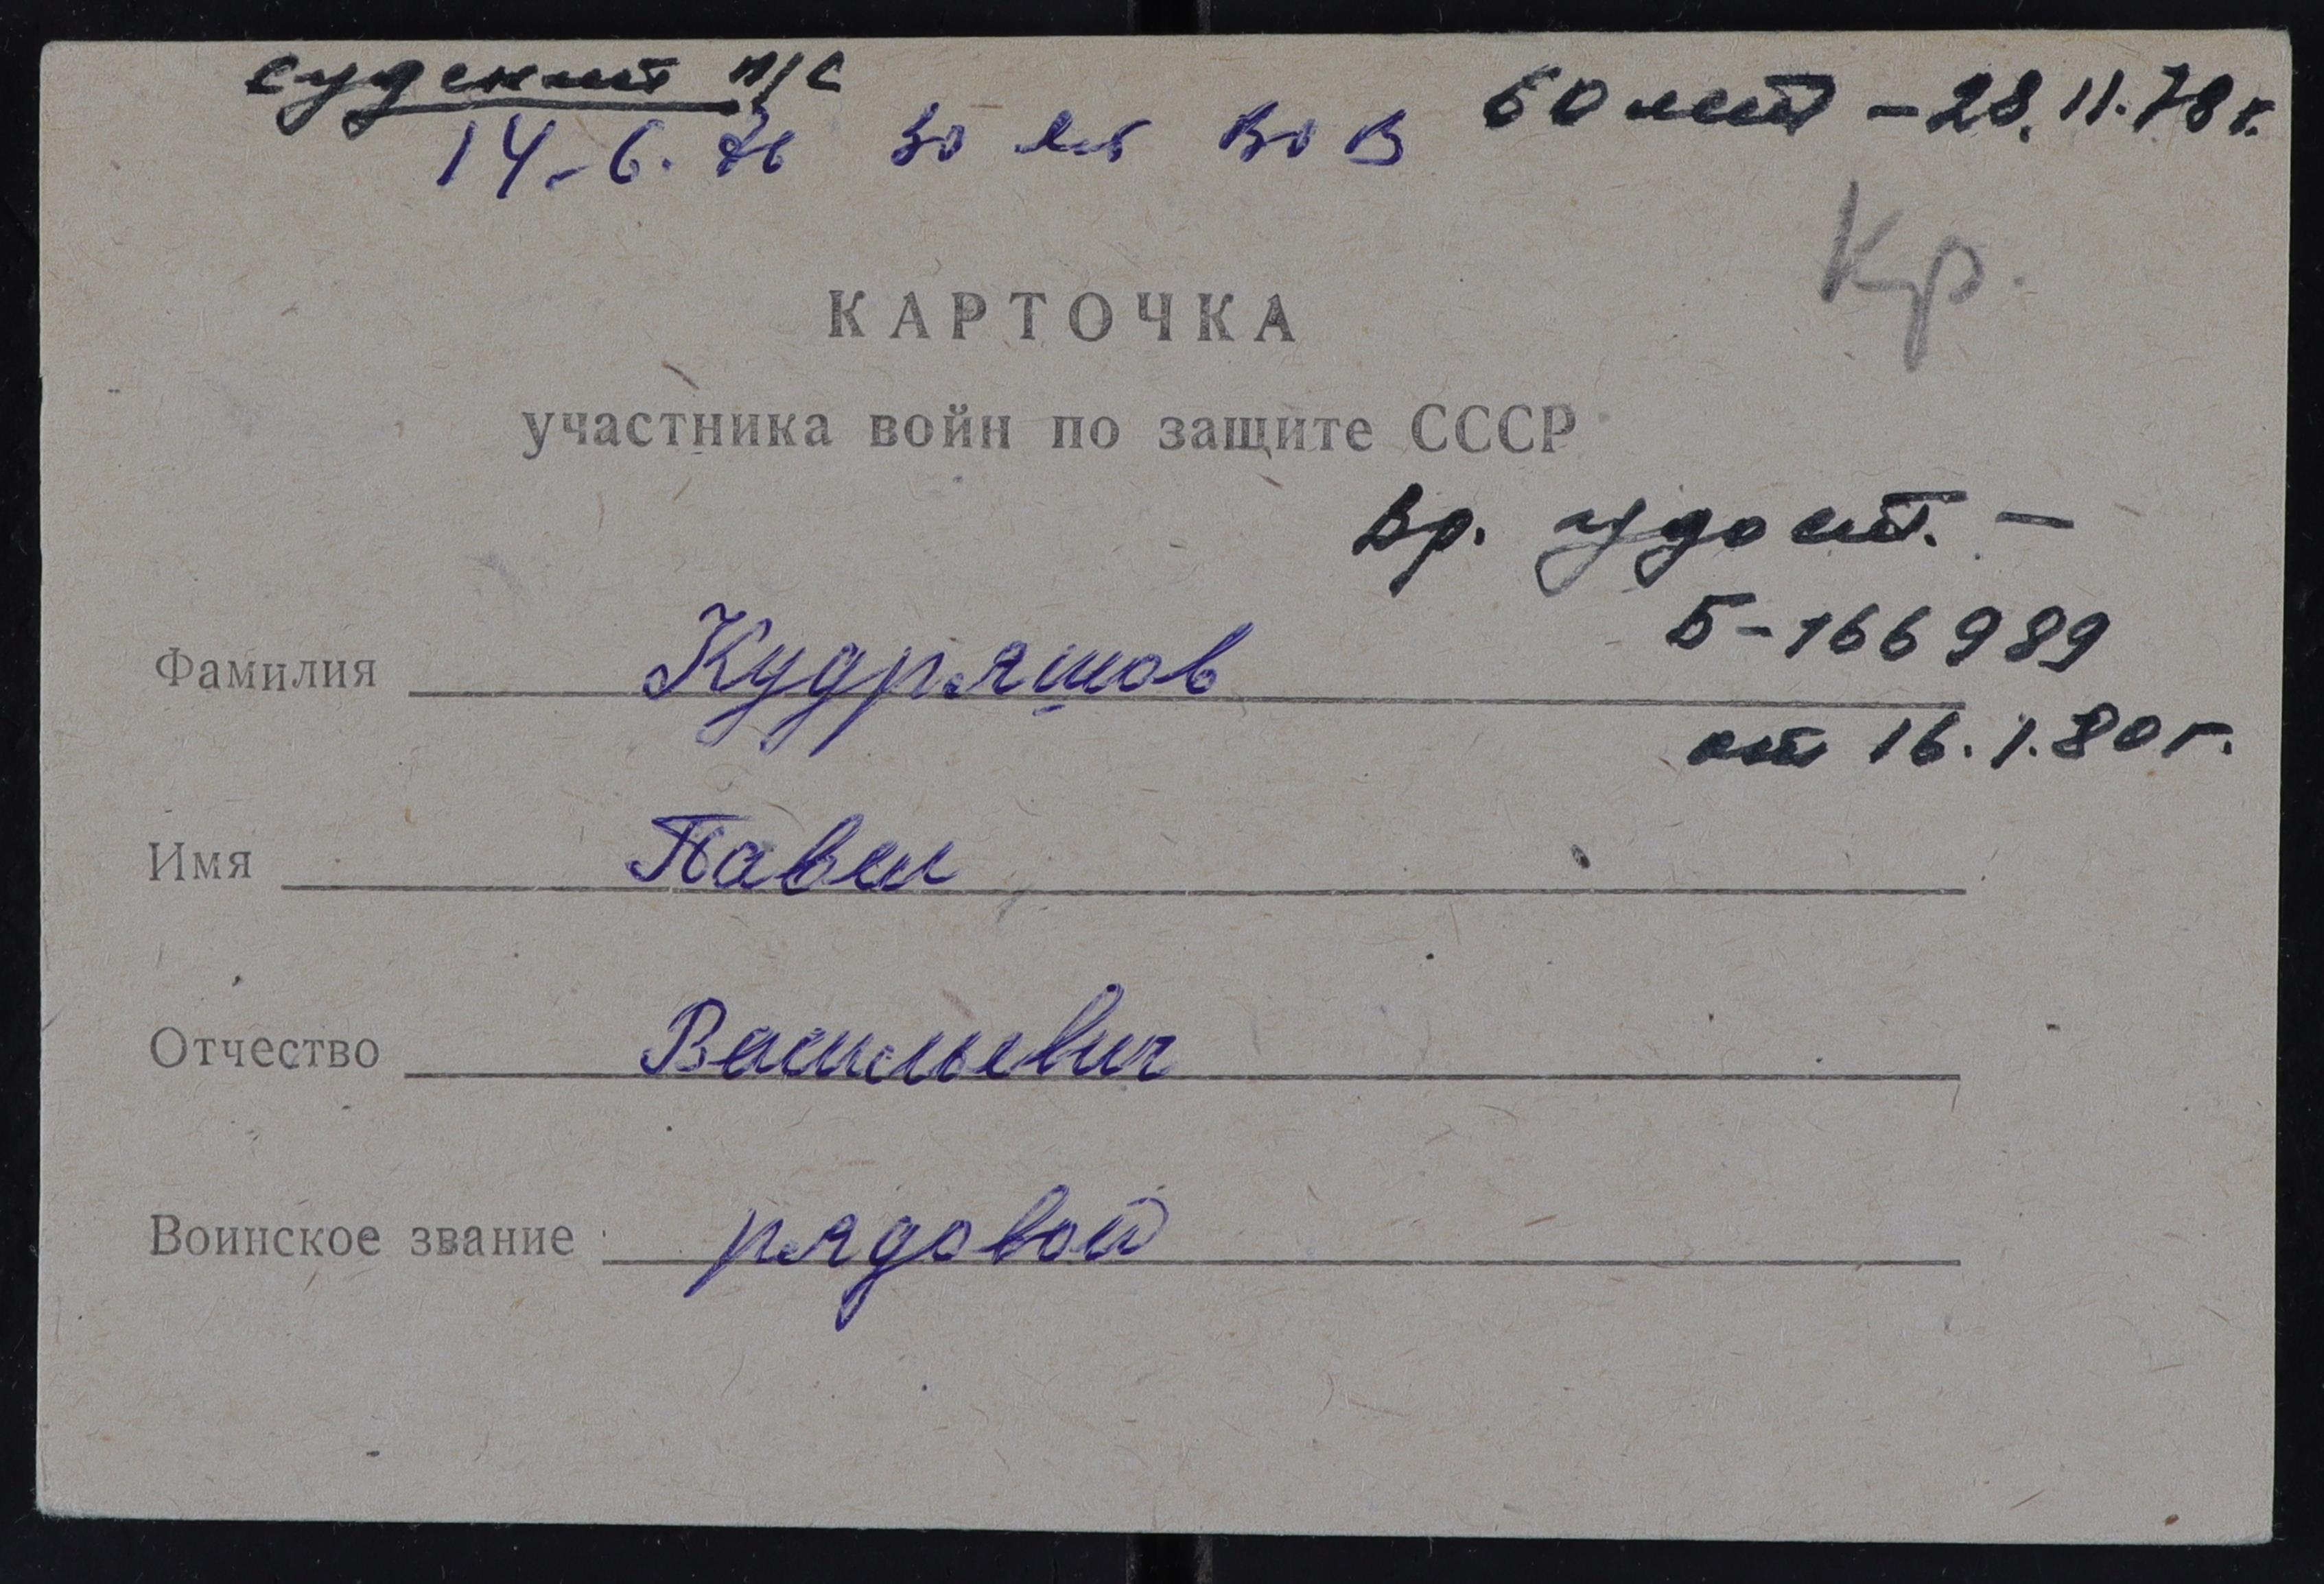 судский п/с 60 лет - 28.11.78 г.
14.6.76 30 лет ВОВ
Кр.
КАРТОЧКА
участника войн по защите СССР
Вр. удост. -
Б-166989
от 16.1.80 г.
Фамилия Кудряшов
Имя Павел
Отчество Васильевич
Воинское звание рядовой